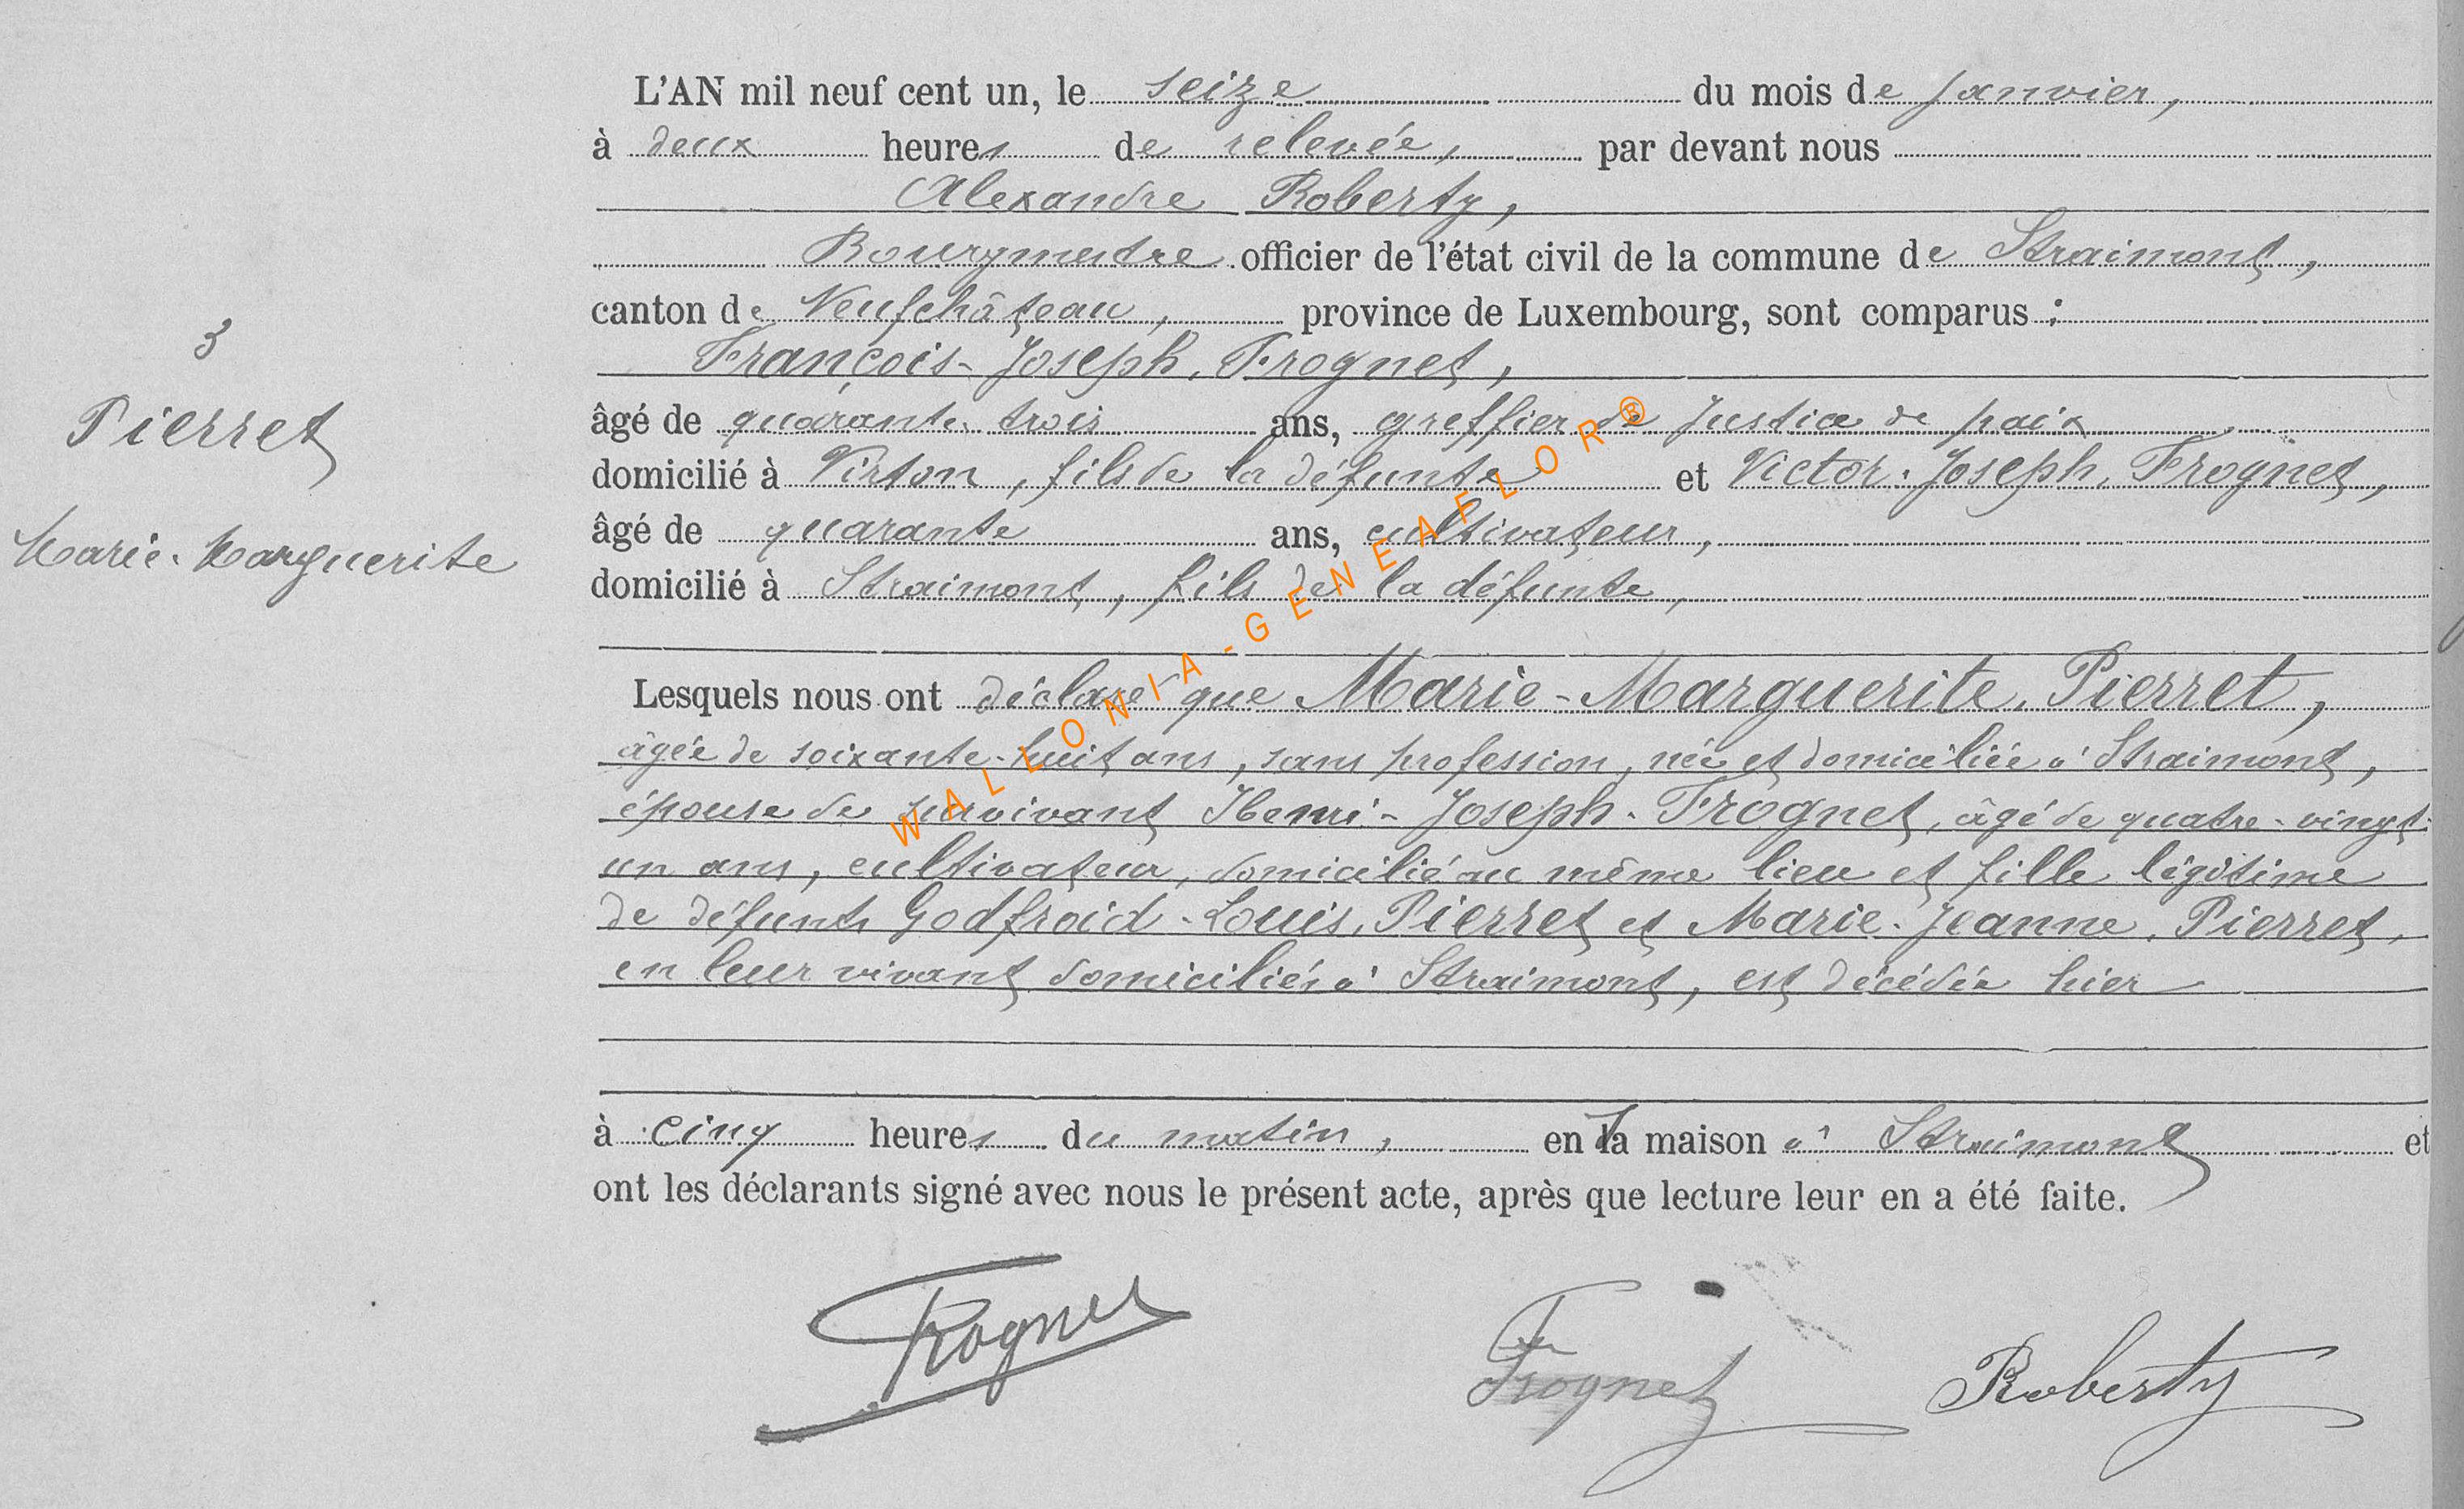 L'AN mil neuf cent un, le seize du mois de Janvier,
à deux heures de relevée, par devant nous
Alexandre Roberty,
Bourgmestre officier de l'état civil de la commune de Straimont,
canton de Neufchâteau, province de Luxembourg, sont comparus :
François-Joseph, Frognet,
âgé de quarante-trois ans, greffier de Justice de paix
domicilié à Virton, fils de la défunte et Victor-Joseph, Frognet,
âgé de quarante ans, cultivateur,
domicilié à Straimont, fils de la défunte,
3
Pierret
Marie-Marguerite
Lesquels nous ont déclaré que Marie-Marguerite, Pierret,
âgée de soixante-huit ans, sans profession, née et domiciliée à Straimont,
épouse de survivant Henri-Joseph-Frognet, âgé de quatre-vingt-
un ans, cultivateur, domicilié au même lieu et fille légitime
de défunts Godfroid-Louis, Pierret et Marie-Jeanne, Pierret,
en leur vivant domiciliés à Straimont, est décédée hier
à cinq heures du matin, en la maison à Straimont et
ont les déclarants signé avec nous le présent acte, après que lecture leur en a été faite.
Frognet
Frognet
Roberty
WALLONIA-GENEAFLOR®